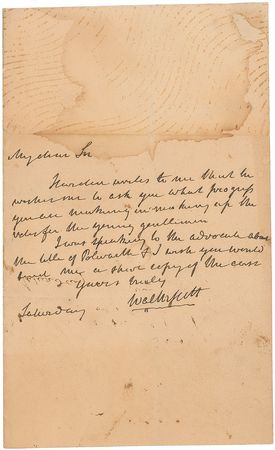 My dear Sir
Harden writes to me that he
wishes me to ask you what progress
you are making in making up the
for the young gentlemen
I was speaking to the advocate about
the title of Polwarth & I wish you would
send me a short copy of the case
Yours truly
Walter Scott
Saturday